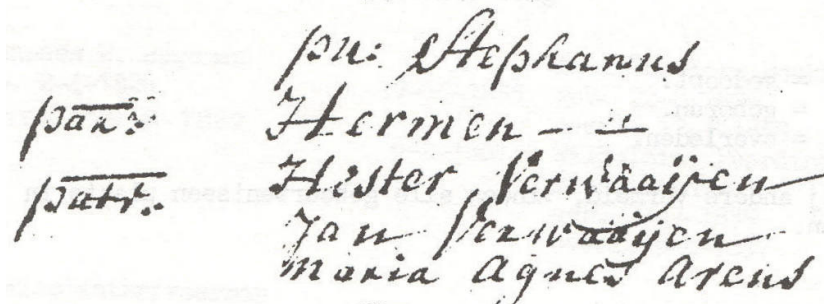 pu: Stephanus
par: Hermen — "
Hester Verwaaijen
patr: Jan Verwaaijen
maria Agnes Arens